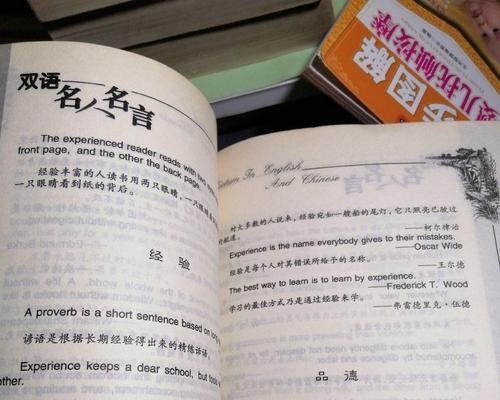 双语
名人名言
The experienced reader reads with
front page, and the other the back page.
经验丰富的人读书用两只眼睛，一只
一只眼睛看到纸的背后。
经验
A proverb is a short sentence based on
谚语是根据长期经验得出来的精练话语。
Experience keeps a dear school, but
other.
In English
And Chinese
名人名言
对大多数的人说来，经验宛如一艘船的尾灯，它只照亮已驶过
的航道。
——柯尔律治
Experience is the name everybody gives to their mistakes.
——Oscar Wide
经验是每个人对其错误所给予的名称。
——王尔德
The best way to learn is to learn by experience.
——Frederick T. Wood
学习的最佳方式乃是通过经验来学。
——弗雷德里克·伍德
品德
图解
婴儿抚触按摩